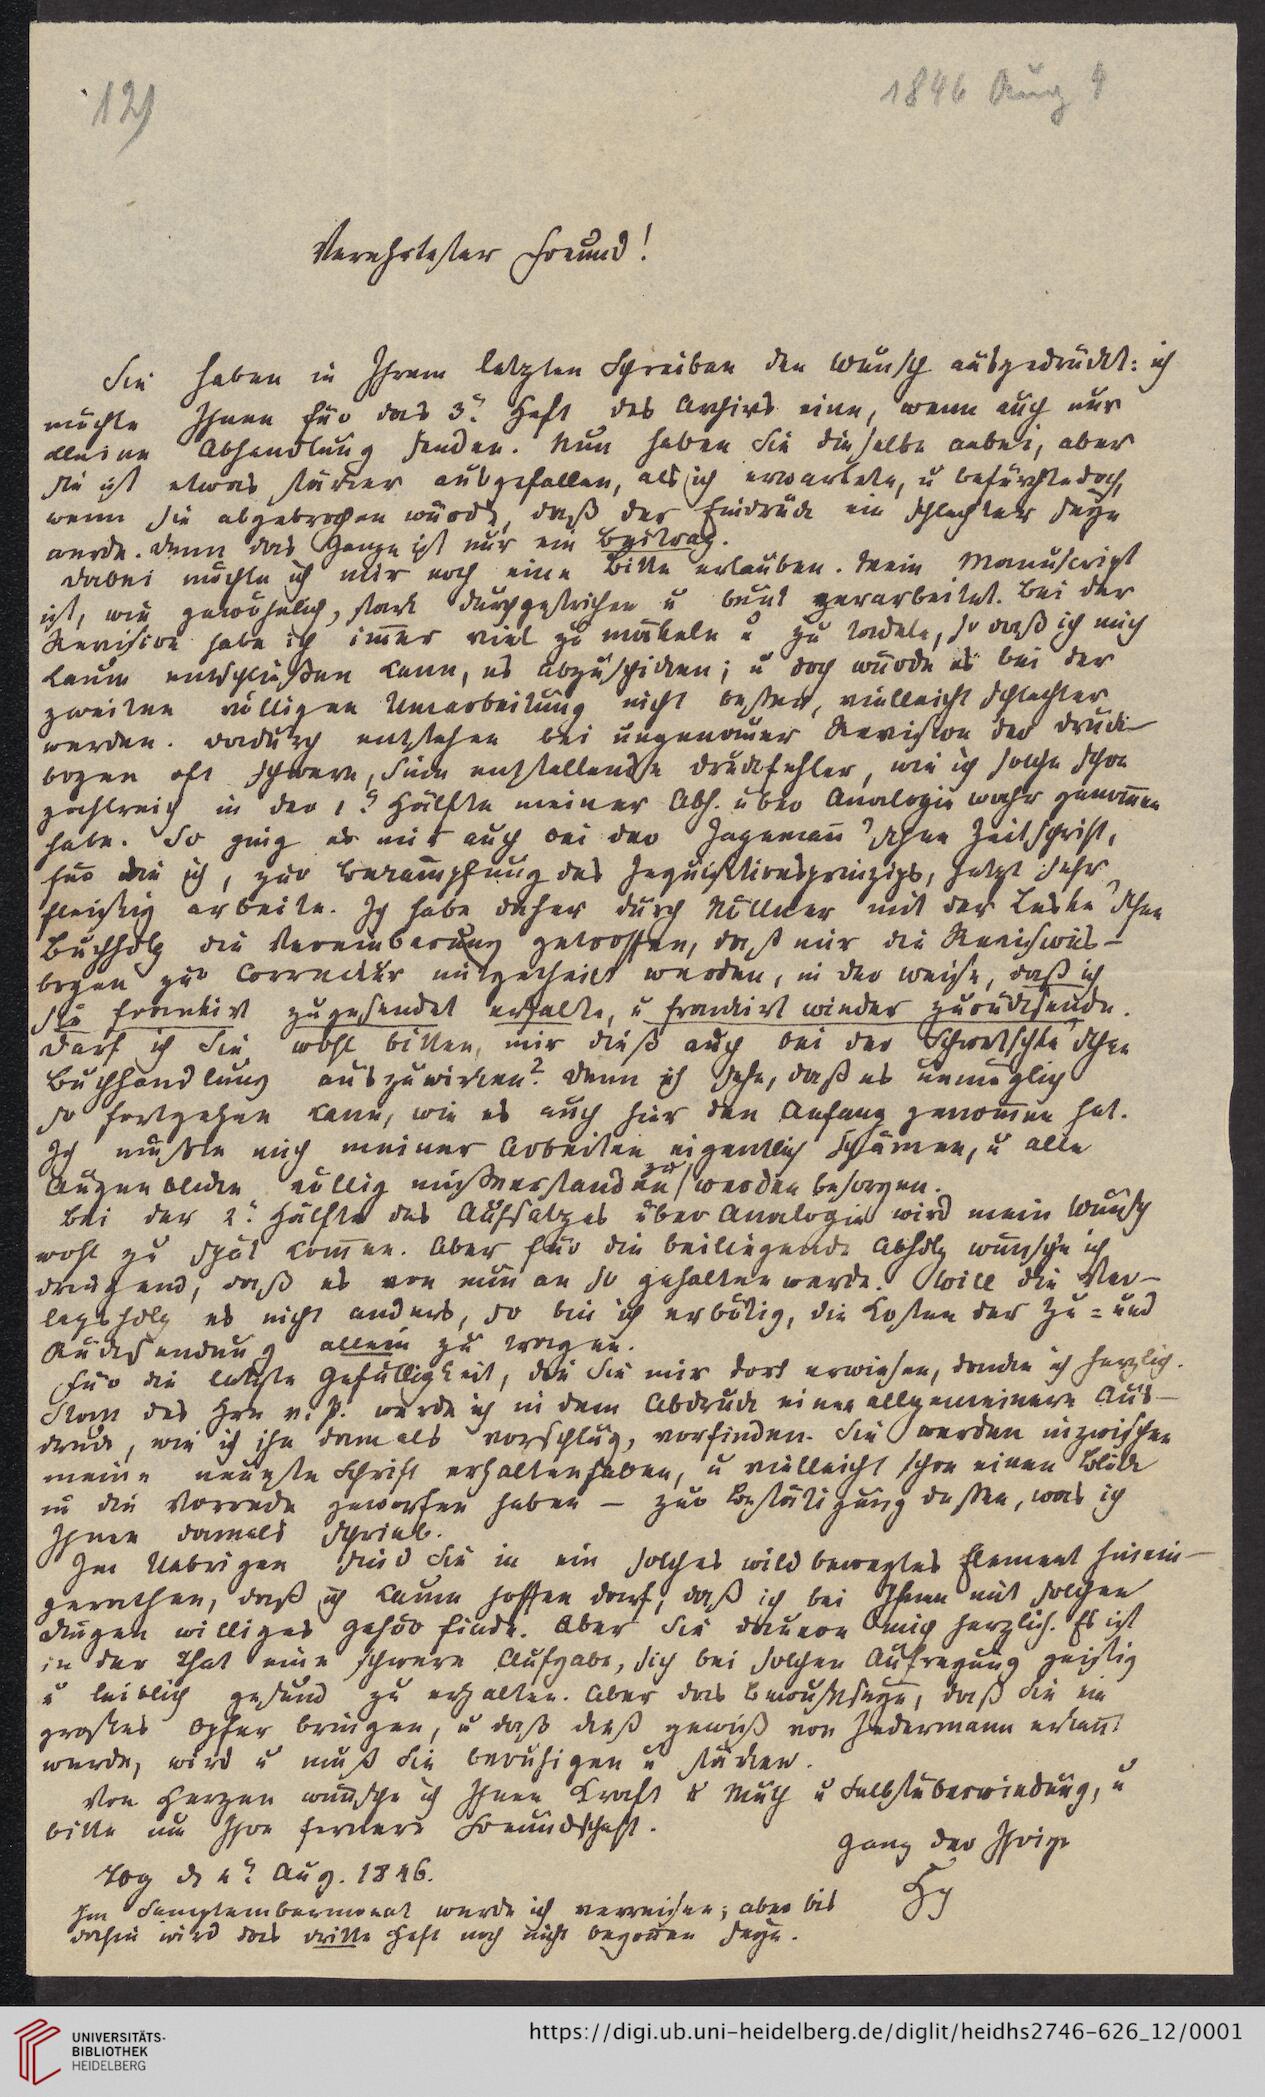 12)
1846 Aug 4
Verehrtester Freund!
Sie haben in Ihrem letzten Schreiben den Wunsch ausgedrückt: ich
möchte Ihnen für das 3. Heft des Archivs eine, wenn auch nur
kleine Abhandlung senden. Nun haben Sie dieselbe anbei, aber
sie ist etwas stärker ausgefallen, als ich erwartete, u befürchte doch,
wenn sie abgebrochen würde, daß der Eindruck ein schlechter seyn
werde. Denn das Ganze ist nur ein Beitrag.
Dabei möchte ich mir noch eine Bitte erlauben. Mein Manuscript
ist, wie gewöhnlich, stark durchgestrichen u bunt verarbeitet. Bei der
Revision habe ich im̄er viel zu mäkeln u zu tadeln, so daß ich mich
kaum entschließen kann, es abzuschicken; u doch würde es bei der
zweiten völligen Umarbeitung nicht besser, vielleicht schlechter
werden. Dadurch entstehen bei ungenauer Revision der Druck-
bogen oft schwere, Sinn entstellende Druckfehler, wie ich solche schon
zahlreich in der 1. Hälfte meiner Abh. über Analogie wahr genom̄en
habe. So ging es mir auch bei der Jagemañ'schen Zeitschrift,
für die ich, zur Bekämpfung des Inquisitionsprinzips, jetzt sehr
fleißig arbeite. Ich habe daher durch Nöllner mit der Leske'schen
Buchhdlg die Vereinbarung getroffen, daß mir die Revisions-
bogen zur Correctur mitgetheilt werden, in der Weise, daß ich
sie frankirt zugesendet erhalte, u frankirt wieder zurücksende.
Darf ich Sie wohl bitten, mir dieß auch bei der Schwetschke'schen
Buchhandlung auszuwirken? Denn ich sehe, daß es unmöglich
so fortgehen kann, wie es auch hier den Anfang genom̄en hat.
Ich müßte mich meiner Arbeiten eigentlich schämen, u alle
Augenblicke völlig mißverstanden zu werden besorgen.
Bei der 2. Hälfte des Aufsatzes über Analogie wird mein Wunsch
wohl zu spät kom̄en. Aber für die beiliegende Abhdlg wünsche ich
dringend, daß es von nun an so gehalten werde. Will die Ver-
lagshdlg es nicht anders, so bin ich erbötig, die Kosten der Zu- und
Rücksendung allein zu tragen.
Für die letzte Gefälligkeit, die Sie mir dort erwiesen, danke ich herzlich.
Statt des Hrn v. P. werde ich in dem Abdruck einen allgemeinern Aus-
druck, wie ich ihn damals vorschlug, vorfinden. Sie werden inzwischen
meine neueste Schrift erhalten haben, u vielleicht schon einen Blick
in die Vorrede geworfen haben – zur Bestätigung dessen, was ich
Ihnen damals schrieb.
Im Uebrigen sind Sie in ein solches wild bewegtes Element hinein-
gerathen, daß ich kaum hoffen darf, daß ich bei Ihnen mit solchen
Dingen williges Gehör finde. Aber Sie dauern mich herzlich. Es ist
in der That eine schwere Aufgabe, sich bei solchen Aufregung geistig
u leiblich gesund zu erhalten. Aber das Bewußtseyn, daß Sie ein
großes Opfer bringen, u daß dieß gewiß von Jedermann erkañt
werde, wird u muß Sie beruhigen u stärken.
Von Herzen wünsche ich Ihnen Kraft u Muth u Selbstüberwindung, u
bitte um Ihre fernere Freundschaft.
Ganz der Ihrige
Tbg d. 4. Aug. 1846.
Im Septembermonat werde ich verreisen; aber bis
dahin wird das dritte Heft noch nicht begoñen seyn.
UNIVERSITÄTS-
BIBLIOTHEK
HEIDELBERG
https://digi.ub.uni-heidelberg.de/diglit/heidhs2746-626_12/0001